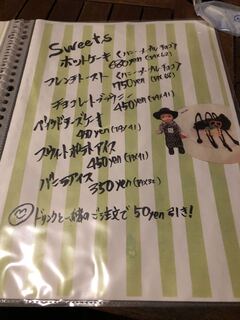 Sweets
ホットケーキ (ハニー・メープル・チョコ)
630yen
フレンチトースト (ハニー・メープル・チョコ)
750yen
チョコレートブラウニー
450yen
ベイクドチーズケーキ
スウィートポテトアイス
450yen
バニラアイス
350yen
ドリンクと一緒のご注文で 50yen 引き!